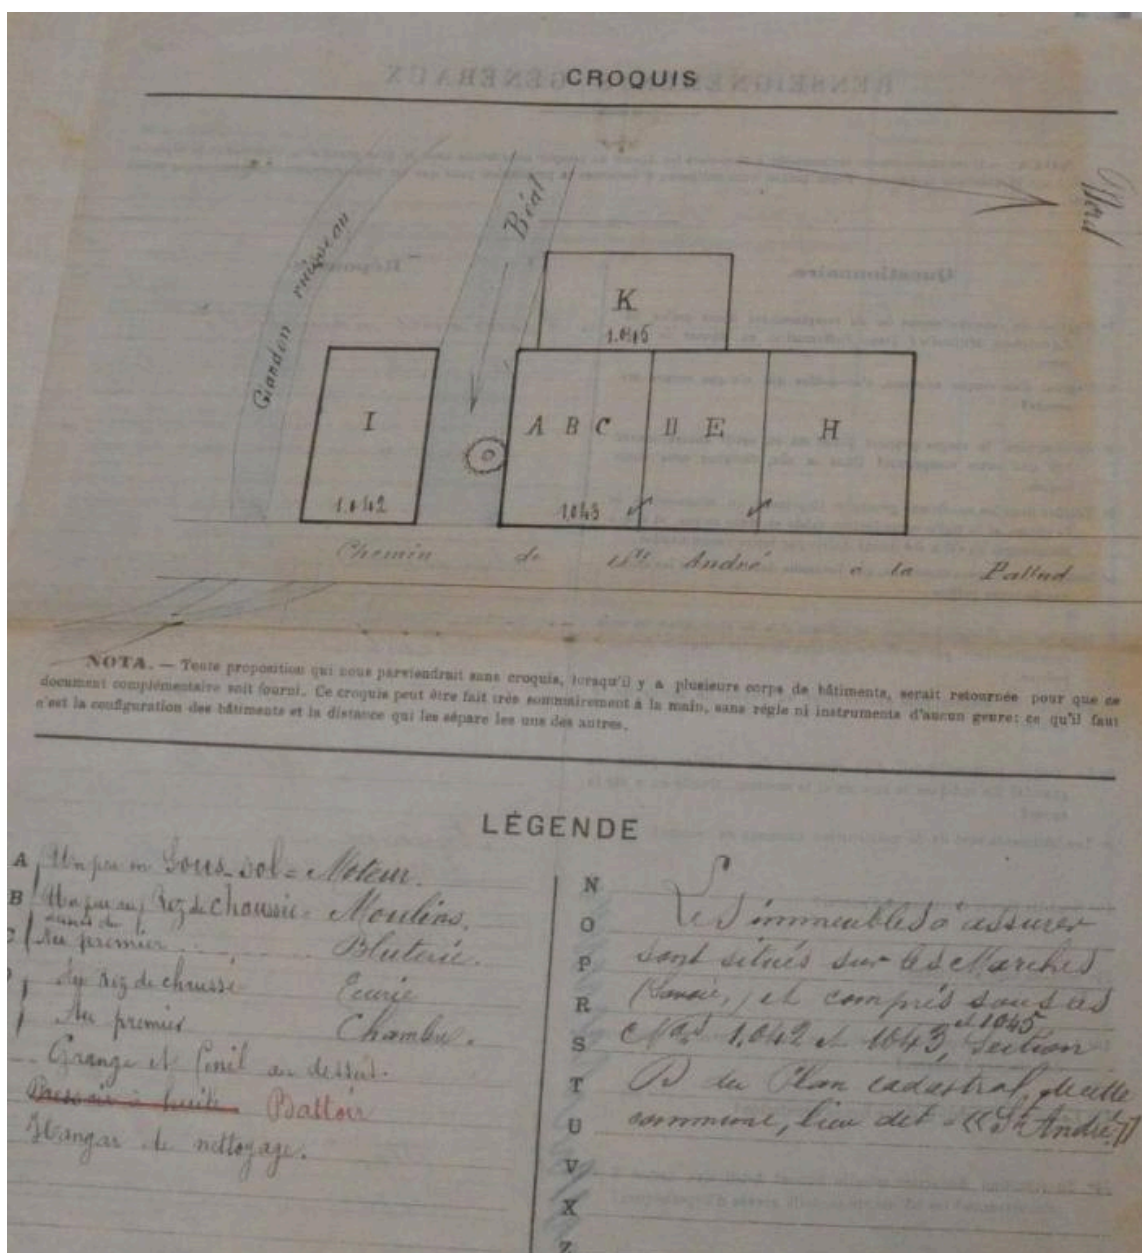 CROQUIS
Nord
Glandon ruisseau
Béal
K
1.045
I
1.042
A B C
D E
H
1.043
Chemin de St André à la Pallud
NOTA. — Toute proposition qui nous parviendrait sans croquis, lorsqu'il y a plusieurs corps de bâtiments, serait retournée pour que ce
document complémentaire soit fourni. Ce croquis peut être fait très sommairement à la main, sans règle ni instruments d'aucun genre: ce qu'il faut
c'est la configuration des bâtiments et la distance qui les sépare les uns des autres.
LÉGENDE
A Un peu en Sous-sol = Moteur.
B Un peu au Rez de chaussée = Moulins.
C Au premier Bluterie.
Au rez de chaussé Ecurie
Au premier Chambre.
Grange et Fenil au dessus.
Pressoir à huile Battoir
Hangar de nettoyage.
N
O Les immeubles à assurer
P sont situés sur les Marches
R (Savoie,) et compris sous les
S Nos 1,042 et 1043, et 1045 Section
T B du Plan cadastral, de cette
U commune, lieu dit «St André»
V
X
Z